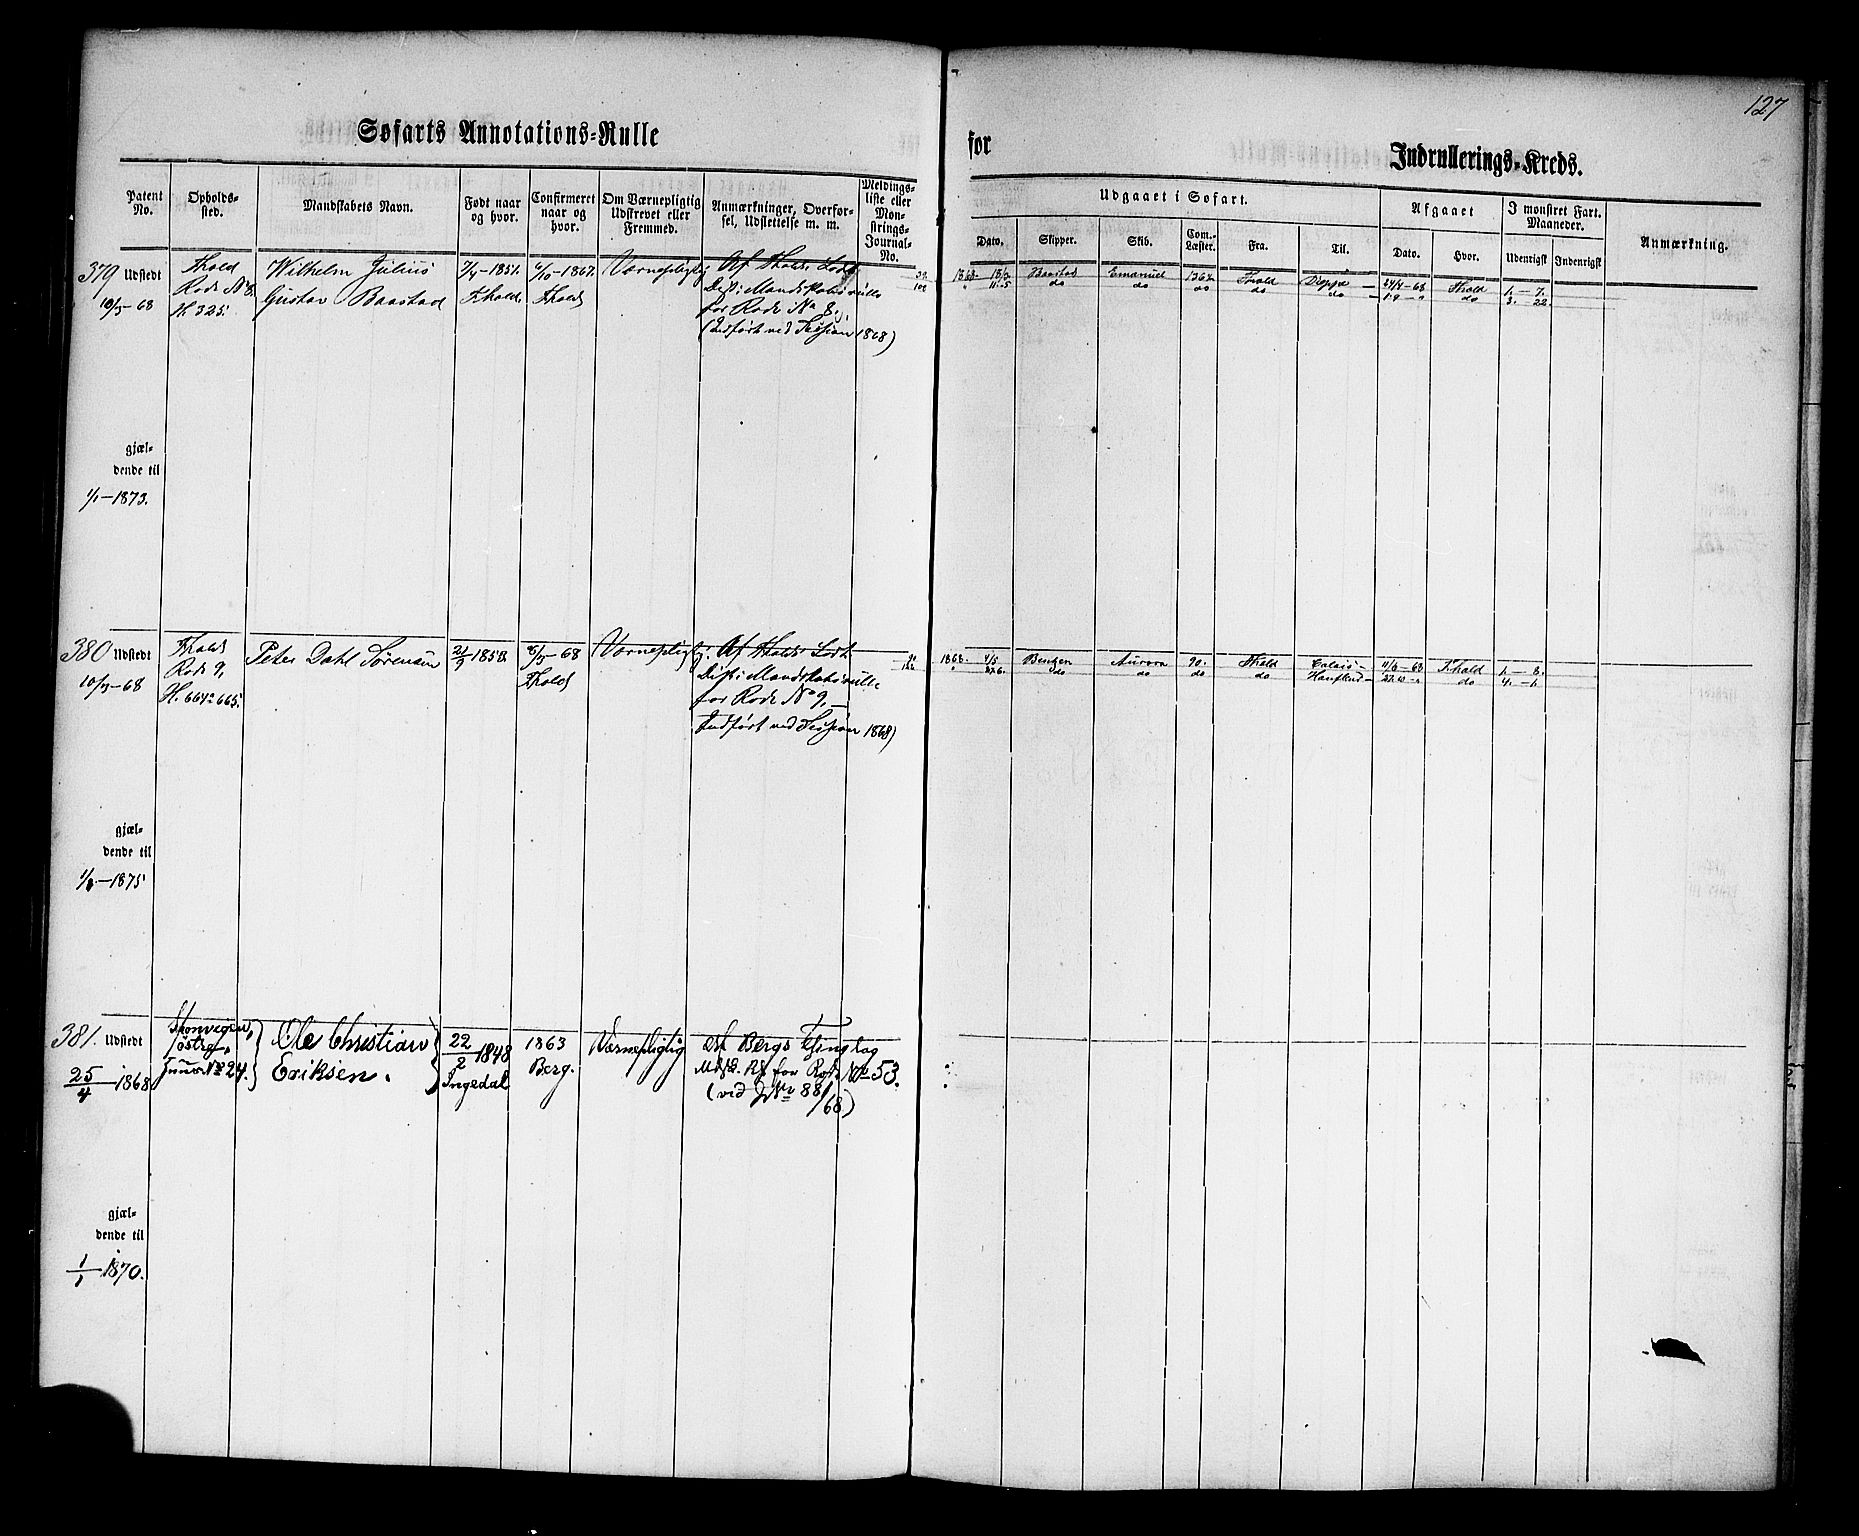 127
Søfarts Annotations=Rulle for Indrullerings=Kreds.
Patent No.
Opholds= sted.
Mandskabets Navn.
Født naar og hvor.
Confirmeret naar og hvor.
Om Værnepligtig Udskrevet eller Fremmed.
Anmærkninger, Overfør= sel, Udslettelse m. m.
Meldings= liste eller Møn= strings= Journal= No.
Udgaaet i Søfart.
Dato.
Skipper.
Skib.
Com.= Læster.
Fra.
Til.
Afgaaet
Dato.
Hvor.
I mønstret Fart. Maaneder.
Udenrigsk
Indenrigsk
Anmærkning.
379 Udstedt
10/3 - 68
Fhald
Rode No 8.
H 325.
Wilhelm Julius
Gustav Baastad
7/4 - 1851.
Fhald
6/10 - 1867.
Fhald
Værnepligtig
Af Fhalds Lodt.
Dist: Mandskabsrulle
for Rode No 8.
(Indført ved Session 1868)
1868
Baastad Emanuel 136½ Fhald Dieppe 24/4 - 68 Fhald 1. - 7.
11.5 do do do do do 1.9 - " do 3. 22
gjæl=
dende til
1/1 - 1873.
380 Udstedt
10/3 - 68
Fhald
Rode 9,
H. 664 - 665.
Peter Dahl Sørensen
21/9 1850
8/3 - 68
Fhald
Værnepligtig.
Af Fhalds Lodt.
Dist: Mandskabsrulle
for Rode No 9, -
Indført ved Session 1868)
1868. 4/5 Bentzen Aurora 90. Fhald Calais 11/6 - 68 Fhald 1. - 8.
22.6. do do do do 27.10 - " do 4. - 1.
gjæl=
dende til
1/1 - 1875
381. Udstedt
25/4 - 1868
østre
No 24.
Ole Christian
Eriksen.
22/2 1848
Ingedal
1863
Berg.
Værnepligtig
Af Bergs Thinglag
Mdsk. Rl for Rode No 53.
(vid J No 88/68)
gjæl=
dende til
1/1 1870.